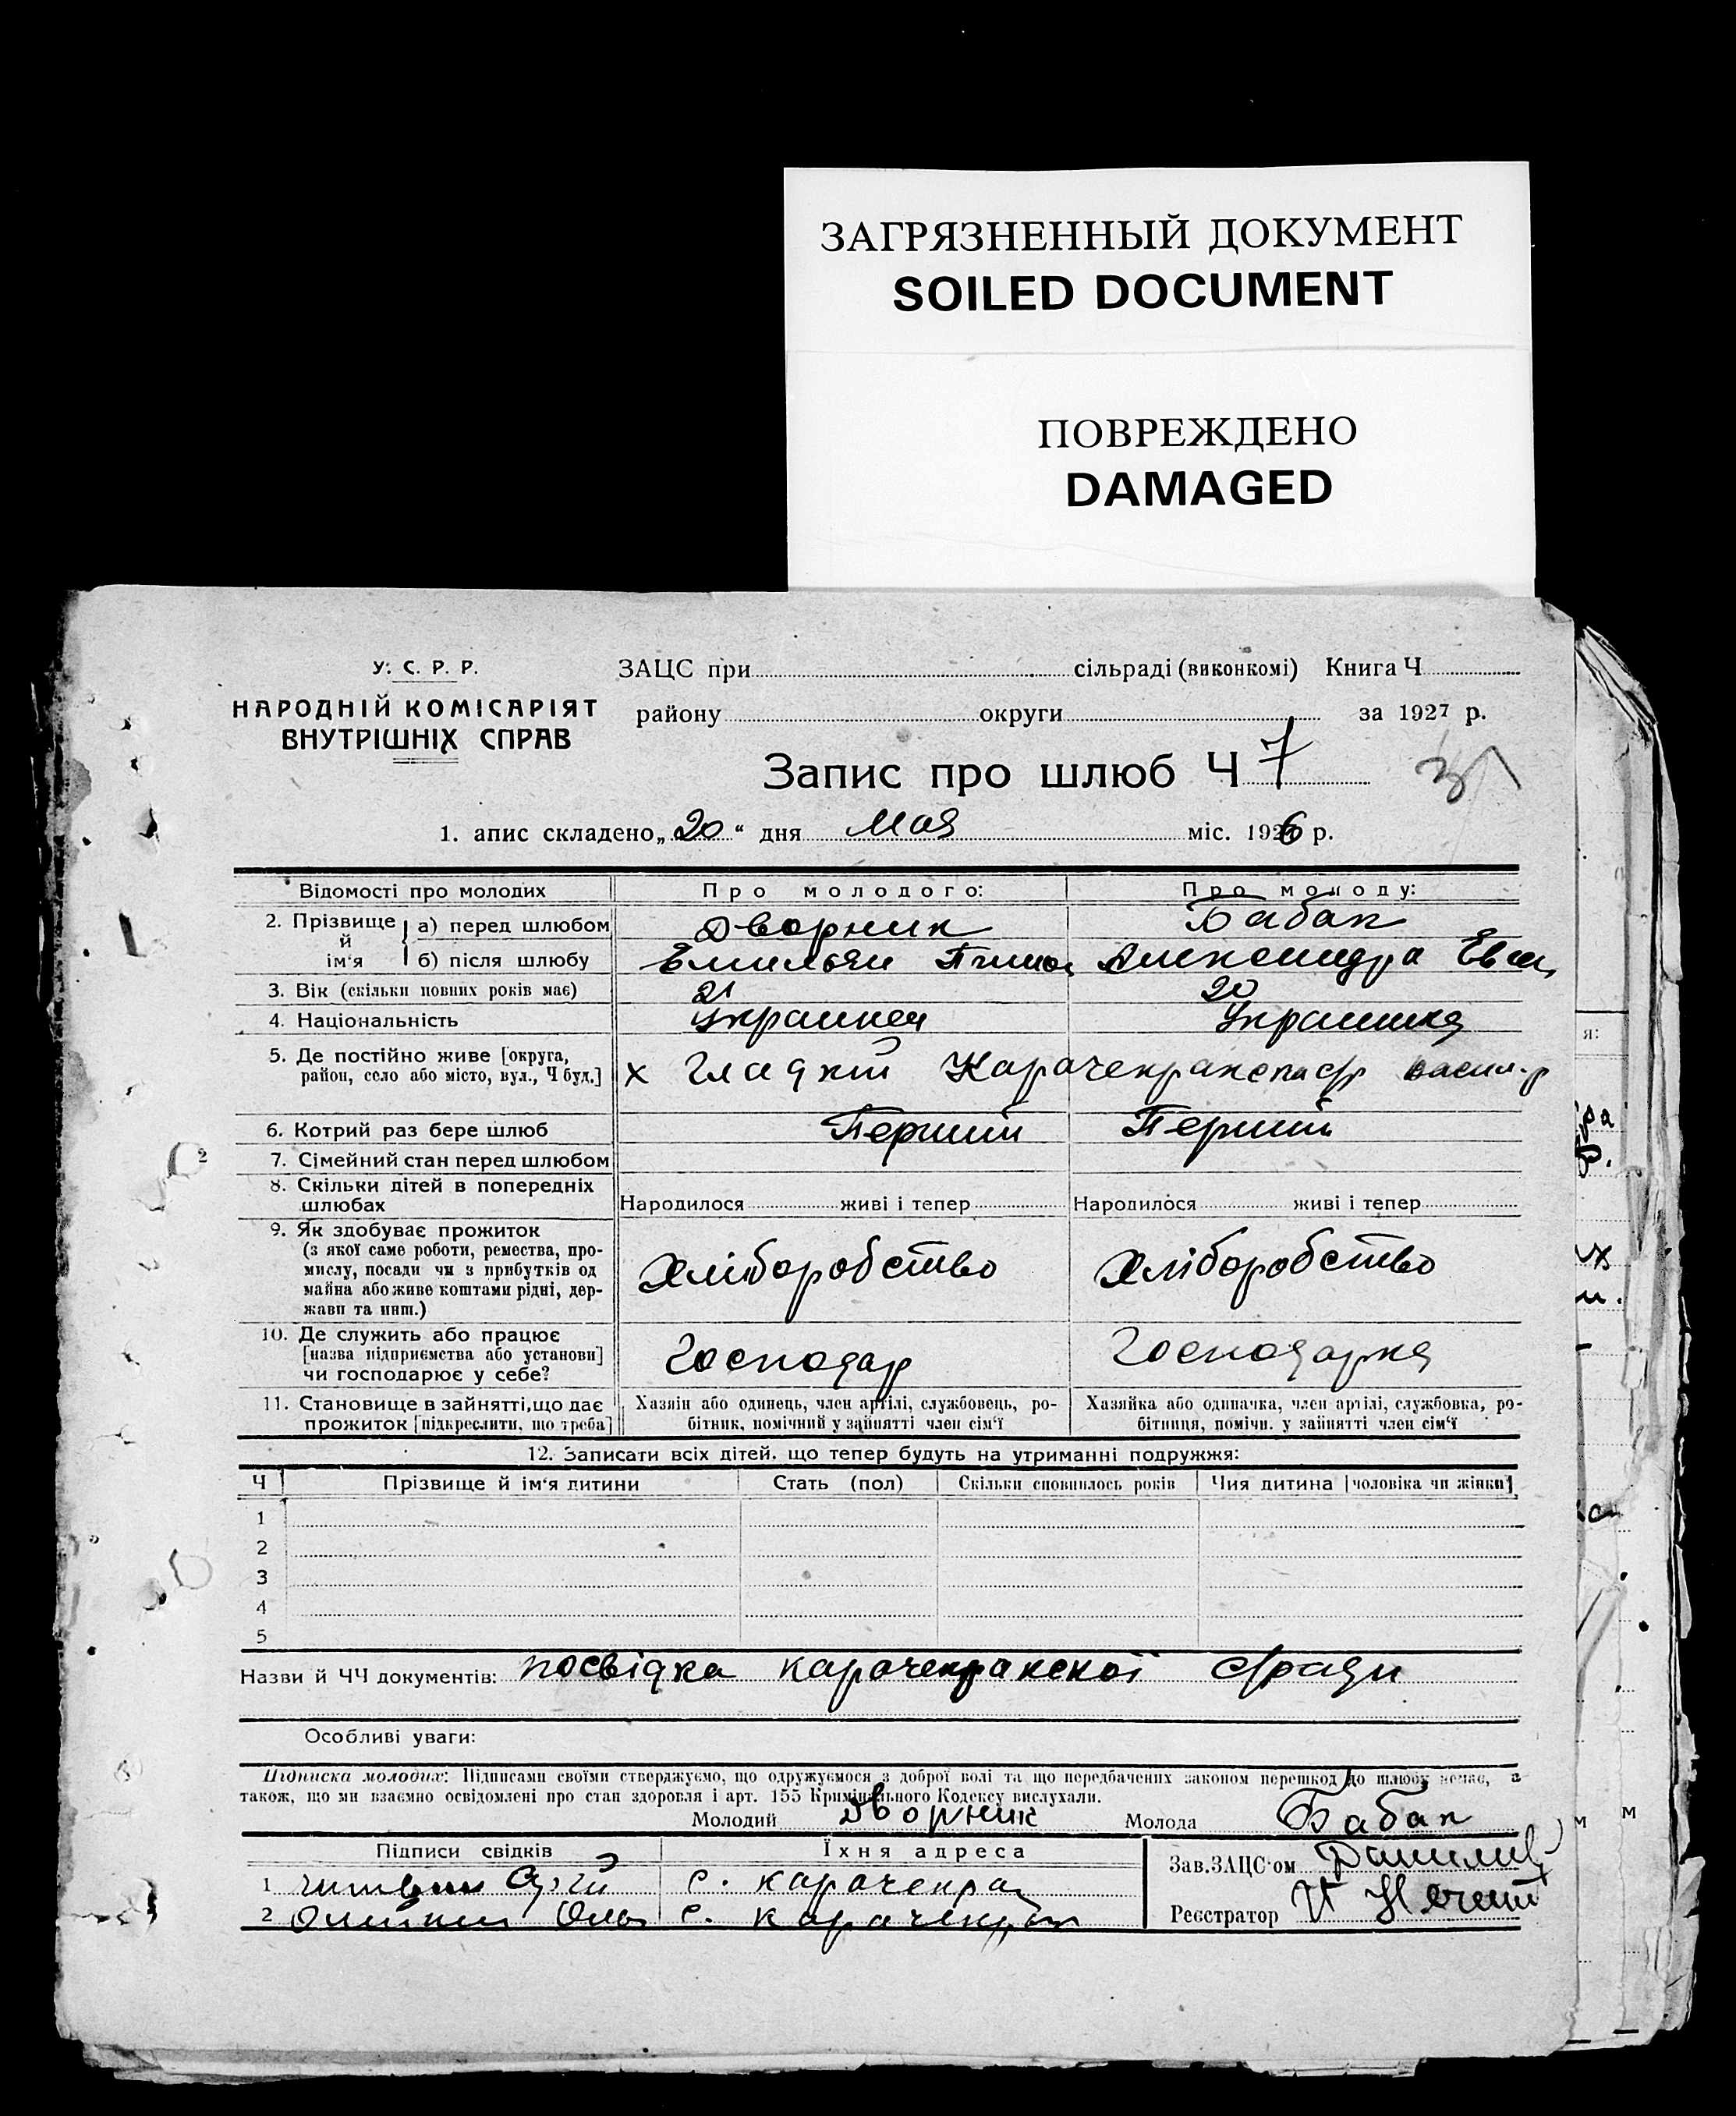 ЗАГРЯЗНЕННЫЙ ДОКУМЕНТ
SOILED DOCUMENT
ПОВРЕЖДЕНО
DAMAGED
У. С. Р. Р.
НАРОДНІЙ КОМІСАРІЯТ
ВНУТРІШНІХ СПРАВ
ЗАЦС при сільраді (виконкомі) Книга Ч
району округи за 1927 р.
Запис про шлюб Ч 7
1. апис складено „20“ дня Мая міс. 1926 р.
Відомості про молодих Про молодого: Про молоду:
2. Прізвище й ім'я
а) перед шлюбом Дворник Бабак
б) після шлюбу Емильян Александра
3. Вік (скільки повних років має) 21 20
4. Національність Украинец Украинка
5. Де постійно живе [округа,
район, село або місто, вул., Ч буд.] х Гладкий
6. Котрий раз бере шлюб Перший Перший
7. Сімейний стан перед шлюбом
8. Скільки дітей в попередніх
шлюбах Народилося живі і тепер Народилося живі і тепер
9. Як здобуває прожиток
(з якої саме роботи, ремества, про-
мислу, посади чи з прибутків од
майна або живе коштами рідні, дер-
жави та инш.)
Хліборобство Хліборобство
10. Де служить або працює
[назва підприємства або установи]
чи господарює у себе?
Господар Господарка
11. Становище в зайнятті, що дає
прожиток [підкреслити, що треба]
Хазяїн або одинець, член артілі, службовець, ро-
бітник, помічний у зайнятті член сім'ї
Хазяйка або одиначка, член артілі, службовка, ро-
бітниця, помічн. у зайнятті член сім'ї
12. Записати всіх дітей, що тепер будуть на утриманні подружжя:
Ч Прізвище й ім'я дитини Стать (пол) Скільки сповнилось років Чия дитина [чоловіка чи жінки]
1
2
3
4
5
Назви й ЧЧ документів: посвідка карачекракской с/ради
Особливі уваги:
Підписка молодих: Підписами своїми стверджуємо, що одружуємося з доброї волі та що передбачених законом перешкод до шлюбу немає, а
також, що ми взаємно освідомлені про стан здоровля і арт. 155 Кримінального Кодексу вислухали.
Молодий Дворник Молода Бабак
Підписи свідків Їхня адреса
1 с. карачекрак
2 с. карачекрак
Зав.ЗАЦС'ом
Реєстратор